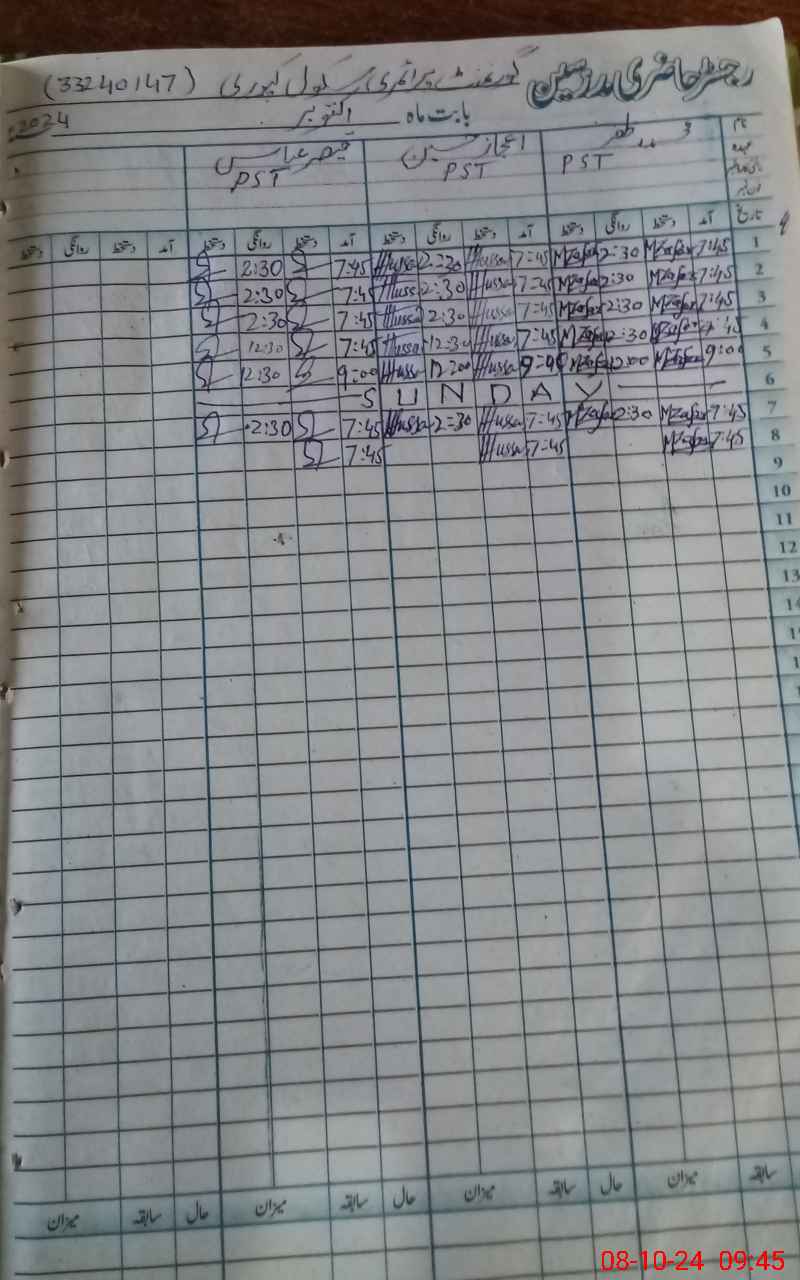 رجسٹر حاضری مدرسین گورنمنٹ پرائمری سکول (33240147)
بابت ماہ اکتوبر 2024
نام اعجاز حسین قیصر عباس
عہدہ PST PST PST
تاریخ آمد دستخط روانگی دستخط آمد دستخط روانگی دستخط آمد دستخط روانگی دستخط آمد دستخط روانگی دستخط
1 7:45 MZafar 2:30 MZafar 7:45 Hussa 2:30 Hussa 7:45 2:30
2 7:45 MZafar 2:30 MZafar 7:45 Hussa 2:30 Hussa 7:45 2:30
3 7:45 MZafar 2:30 MZafar 7:45 Hussa 2:30 Hussa 7:45 2:30
4 7:45 MZafar 12:30 MZafar 7:45 Hussa 12:30 Hussa 7:45 12:30
5 9:00 MZafar 12:00 MZafar Hussa 12:00 Hussa 9:00 12:30
6 SUNDAY
7 7:45 MZafar 2:30 MZafar 7:45 Hussa 2:30 Hussa 7:45 2:30
8 7:45 MZafar 7:45 Hussa 7:45
9
10
11
12
13
14
سابقہ میزان حال سابقہ میزان حال سابقہ میزان حال سابقہ میزان
08-10-24 09:45